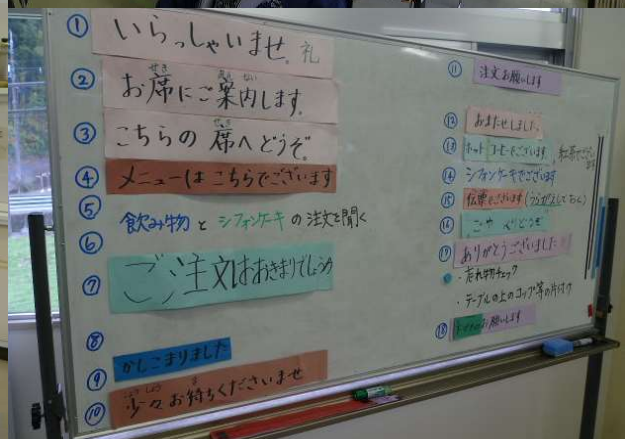 ① いらっしゃいませ。礼
② お席にご案内します。
せき あんない
③ こちらの席へどうぞ。
せき
④ メニューは こちらでございます
⑤ 飲み物 と シフォンケーキ の 注文を聞く
⑥
⑦ ご注文はおきまりでしょうか
⑧
⑨ かしこまりました
⑩ 少々お待ちくださいませ
しょうしょう ま
⑪ 注文お願いします
⑫ おまたせしました。
⑬ ホットコーヒーでございます 紅茶でございます
⑭ シフォンケーキでございます
⑮ 伝票でございます(うらがえしておく)
⑯ ごゆっくりどうぞ
⑰ ありがとうございました
・忘れ物チェック
・テーブルの上のコップ等の片付け
⑱ お願いします